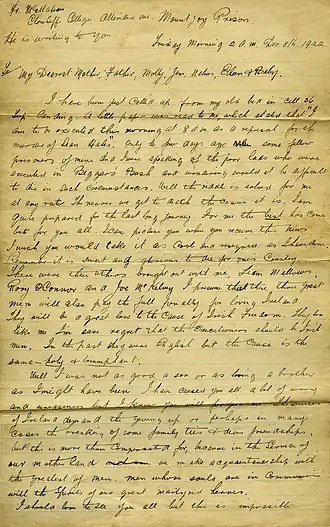 Fr. McMahon
Clonliffe College Attended me. Mountjoy Prison.
He is writing to you
Friday Morning 2 a.m. Dec 8th 1922
To My Dearest Mother, Father, Molly, Jim, Nellie, Eileen & Baby.
I have been just called up from my old bed in cell 36
Top landing. A little paper was read to me which stated that "I
am to be executed this morning at 8 am as a reprisal for the
murder of Sean Hales. Only a few days ago some fellow
prisoners of mine and I were speaking of the poor lads who were
executed in Beggars Bush and wondering would it be difficult
to die in such circumstances. Well the riddle is solved for me
at any rate. The nearer we get to death the easier it is. I am
quite prepared for the last long journey. For me the best has come
but for you all I can picture you when you receive this news
I wish you would take it as cool and resigned as I have done.
Remember it is sweet and glorious to die for one's Country.
There were three others brought out with me, Liam Mellows,
Rory O'Connor and Joe McKelvey I presume that these three great
men will also pay the full penalty for loving Ireland.
They will be a great loss to the Cause of Irish Freedom. They too
like me I'm sure regret that the Executioners should be Irish
men. In the past they were English but the Cause is the
same - holy & triumphant.
Well I was not as good a son or as loving a brother
as I might have been. I have caused you all a lot of worry
and but I know you will forgive me. The
of Ireland demand the giving up or perhaps in many
cases the breaking of some family ties & dear friendships,
but this is more than compensated for, because in the Service of
our motherland we make acquaintanceship with
the greatest of men, men whose souls are in Communion
with the spirits of our great martyred heroes.
I should love to see you all but this is impossible